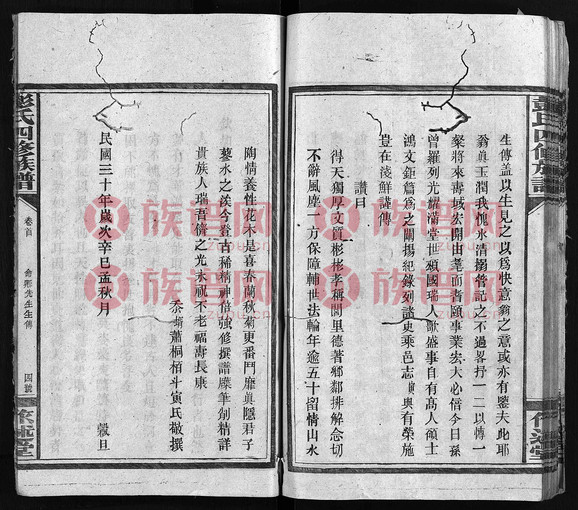 生傳蓋以生見之以爲快意翁之意或亦有鑒夫此耶
翁真玉潤我愧氷清搦管記之不過畧抒一二以傳一
粲將來壽域宏開由耄而耆頤事業宏大必倍今日孫
曾羅列光耀滿堂世頌國瑞人歐盛事自有髙人碩士
鴻文鉅篇爲之闡揚紀錄列譜史乘邑志與有榮施
豈在淺鮮諱傳
贊曰
得天獨厚文質彬彬孝稱閭里德著鄉鄰排解念切
不辭風塵一方保障輔世法輪年逾五十留情山水
陶情養性花木是喜春蘭秋菊東番鬥靡真隱君子
蓼水之湀今登古稀精神倍強修撰譜牒筆削精詳
貴族人瑞吾儕之光永祝不老福壽長康
忝婿蕭桐栢斗寅氏敬撰
民國三十年歲次辛巳孟秋月 穀旦
彭氏四修族譜
卷首
俞卿先生生傳
四號
族谱网
www.zupu.cn